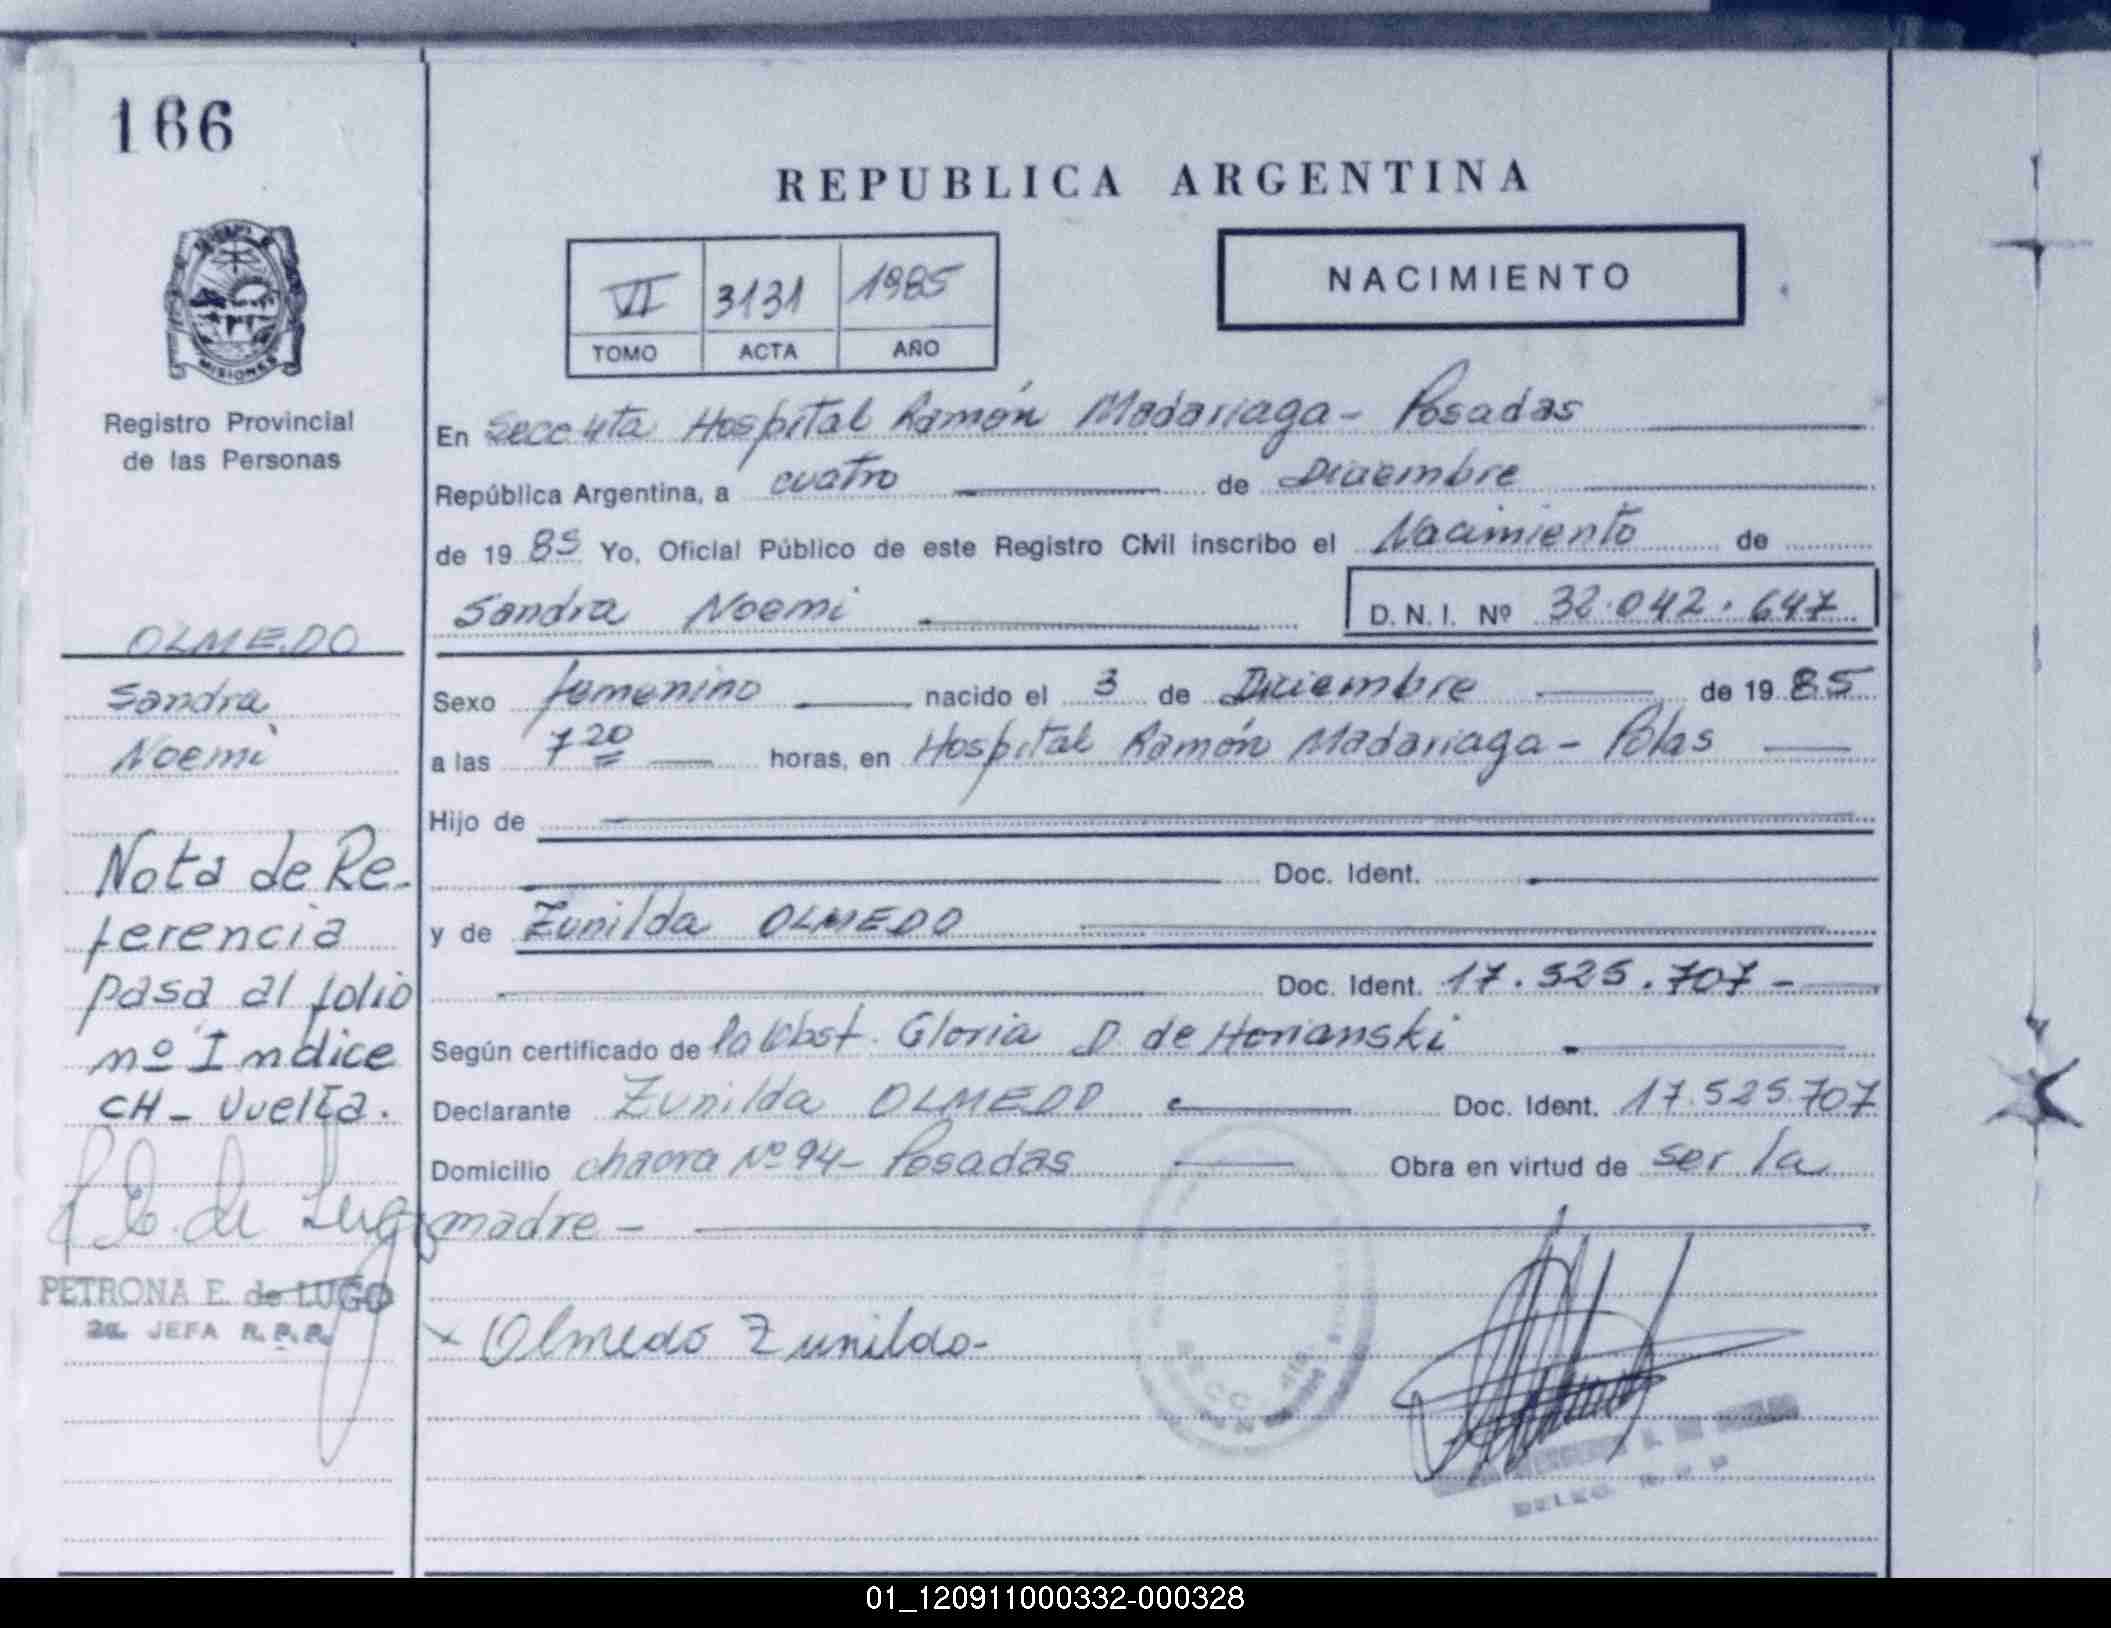 166
REPUBLICA ARGENTINA
NACIMIENTO
VII 3131 1985
TOMO ACTA AÑO
MISIONES
Registro Provincial
de las Personas
En Secc 4ta Hospital Ramón Madariaga - Posadas
República Argentina, a cuatro de Diciembre
de 19 85 Yo, Oficial Público de este Registro Civil inscribo el Nacimiento de
Sandra Noemi D.N.I. Nº 32.042.647
OLMEDO
Sandra
Noemi
Sexo femenino nacido el 3 de Diciembre de 19 85
a las 7 20 horas, en Hospital Ramón Madariaga - Pdas
Hijo de
Doc. Ident.
y de Zunilda OLMEDO
Doc. Ident. 17.525.707 -
Según certificado de la Obst. Gloria D. de Horianski
Declarante Zunilda OLMEDO Doc. Ident. 17.525.707
Domicilio chacra Nº 94 - Posadas Obra en virtud de ser la
madre -
Nota de Re-
ferencia
pasa al folio
nº Indice
CH - Vuelta.
P. E. de Lugo
PETRONA E. de LUGO
2a. JEFA R.P.P.
x Olmedo Zunilda -
01_120911000332-000328